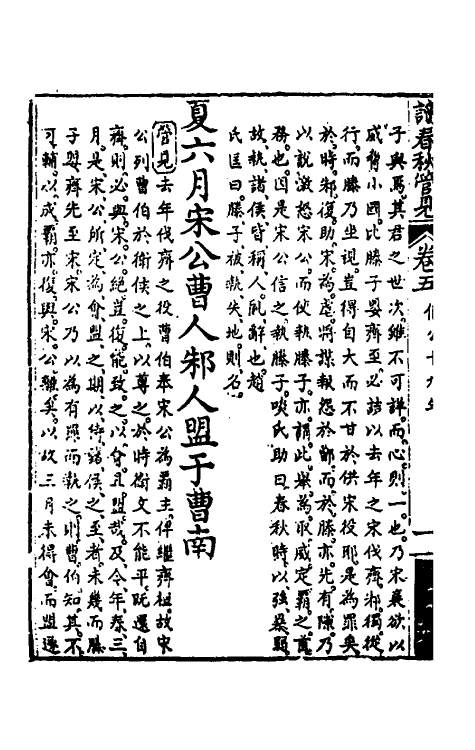 讀春秋管見 卷五 僖公十九年
子與焉其君之世次雖不可詳而心則一也乃宋襄欲以
威脅小國比滕子嬰齊至必詰以去年之宋伐齊邾獨從
行而滕乃坐視豈得自大而不甘於供宋役耶是為罪矣
於時邾復助宋為虐將謀執怨於鄫而於滕亦先有隙乃
以說激怒宋公而使執滕子亦謂此舉為取威定霸之首
務也因是宋公信之執滕子啖氏助曰春秋時以強暴題
故執諸侯皆稱人罰辭也趙
氏匡曰滕子被執失地則名
夏六月宋公曹人邾人盟于曹南
管見去年伐齊之役曹伯奉宋公為霸主俾繼齊桓故宋
公列曹伯於衛侯之上以尊之於時衛文不能平既還自
齊則必與宋公絕豈復能致之以會且盟哉及今年春三
月是宋公所定為會盟之期以待諸侯之至者未幾而滕
子嬰齊先至宋宋公乃以為有罪而執之則曹伯知其不
可輔以成霸亦復與宋公離矣以故三月未得會而盟遲